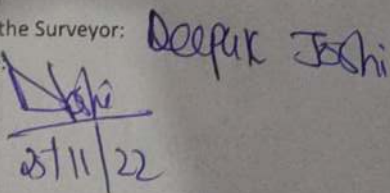 the Surveyor: Deepak Joshi
DJoshi
25/11/22